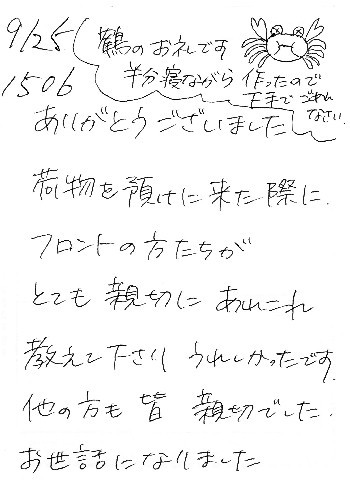 9/25
1506
鶴のお礼です
半分寝ながら作ったので
下手でごめん
なさい
ありがとうございました
荷物を預けに来た際に
フロントの方たちが
とても親切にあれこれ
教えて下さり うれしかったです
他の方も皆親切でした
お世話になりました